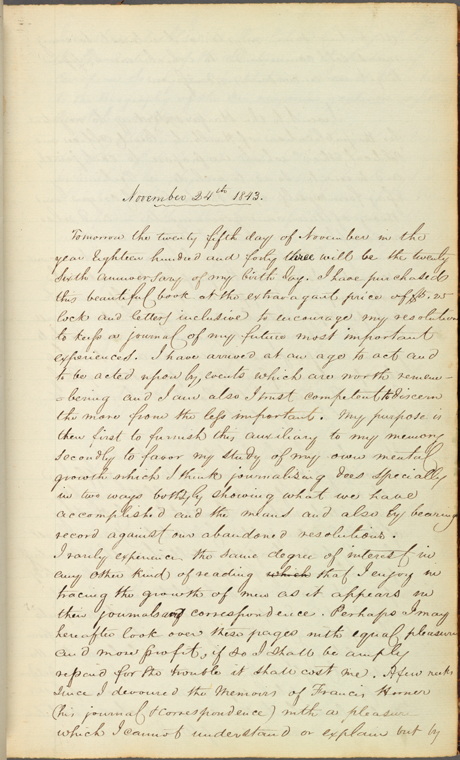 November 24th 1843.
Tomorrow the twenty fifth day of November in the
year Eighteen hundred and forty three will be the twenty
sixth anniversary of my birth day. I have purchased
this beautiful book at the extravagant price of
lock and letters inclusive to encourage my resolution
to keep a journal of my future most important
experiences. I have arrived at an age to act and
to be acted upon by events which are worth remem-
-bering and I am also I trust competent to discern
the more from the less important. My purpose is
then first to furnish this auxiliary to my memory
secondly to favor my study of my own mental
growth which I think journalising does specially
in two ways both by showing what we have
accomplished and the means and also by bearing
record against our abandoned resolutions.
I rarely experience the same degree of interest in
any other kind of reading which that I enjoy in
tracing the growth of men as it appears in
their journals and correspondence. Perhaps I may
hereafter look over these pages with equal pleasure
and more profit, if so I shall be amply
repaid for the trouble it shall cost me. A few weeks
since I devoured the Memoirs of Francis Horner
(his journal & correspondence) with a pleasure
which I cannot understand or explain but by